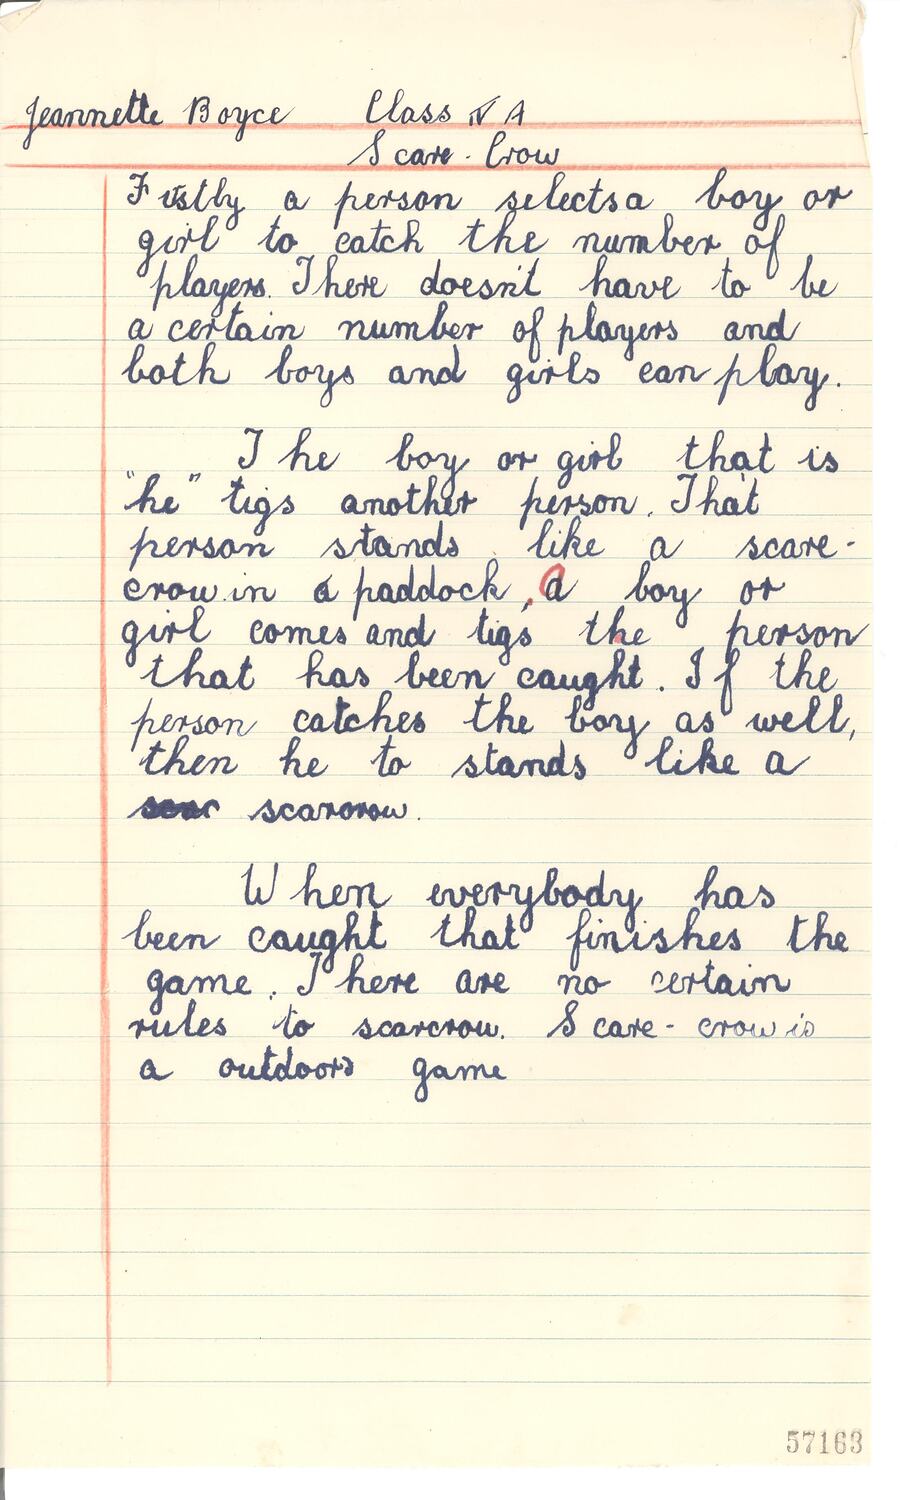 Jeannette Boyce Class IV A
Scare-Crow
Firstly a person selects a boy or
girl to catch the number of
players. There doesn't have to be
a certain number of players and
both boys and girls can play.
The boy or girl that is
"he" tigs another person. That
person stands like a scare-
crow in a paddock, a boy or
girl comes and tigs the person
that has been caught. If the
person catches the boy as well,
then he to stands like a
scarcrow.
When everybody has
been caught that finishes the
game. There are no certain
rules to scarcrow. Scare-crow is
a outdoors game
57163